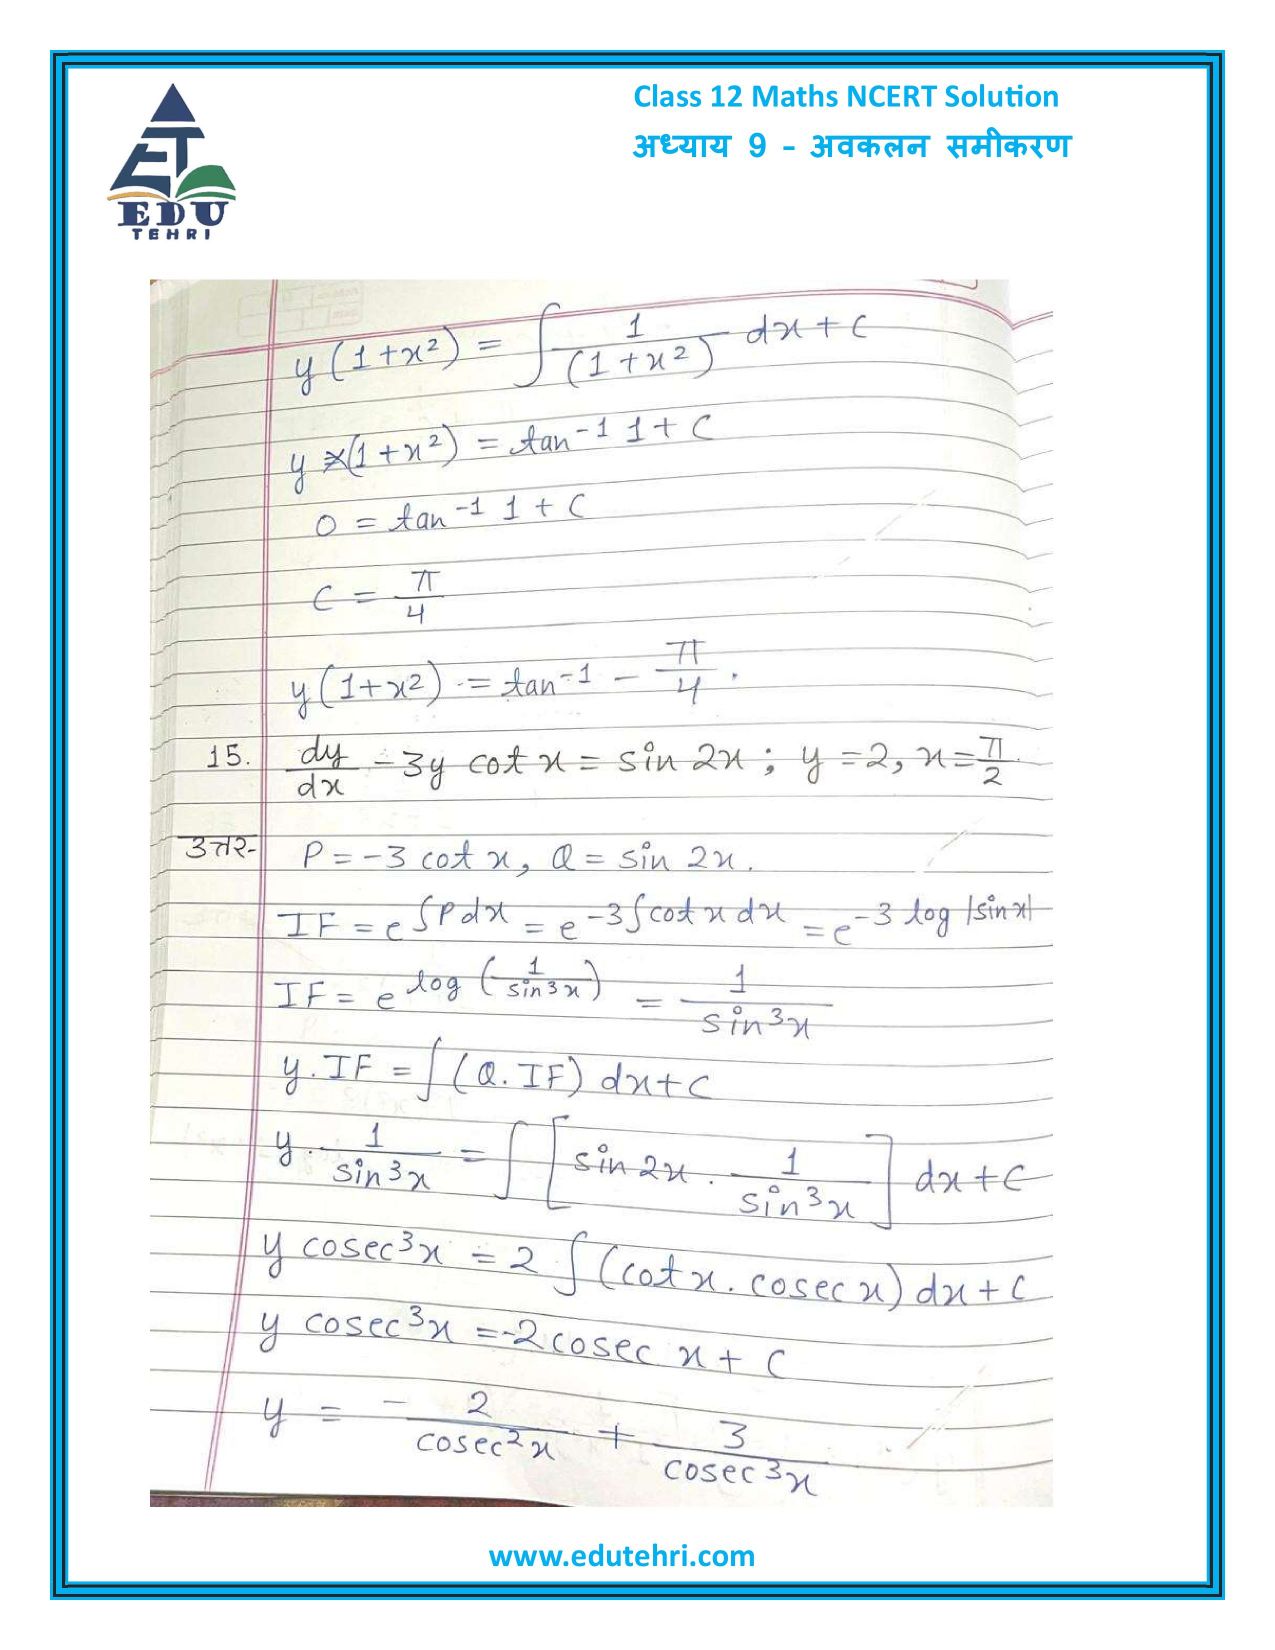 Class 12 Maths NCERT Solution
अध्याय 9 – अवकलन समीकरण
EDU
TEHRI
y(1+x²) = ∫ 1/(1+x²) dx + C
y ×(1+x²) = tan⁻¹ 1 + C
0 = tan⁻¹ 1 + C
C = π/4
y(1+x²) = tan⁻¹ - π/4 .
15. dy/dx - 3y cot x = sin 2x ; y = 2, x = π/2
उत्तर- P = -3 cot x, Q = sin 2x.
IF = e^∫Pdx = e^-3∫cot x dx = e^-3 log |sin x|
IF = e^log (1/sin³x) = 1/sin³x
y. IF = ∫ (Q. IF) dx + C
y. 1/sin³x = ∫ [sin 2x . 1/sin³x] dx + C
y cosec³x = 2 ∫ (cot x. cosec x) dx + C
y cosec³x = -2 cosec x + C
y = - 2/cosec²x + 3/cosec³x
www.edutehri.com